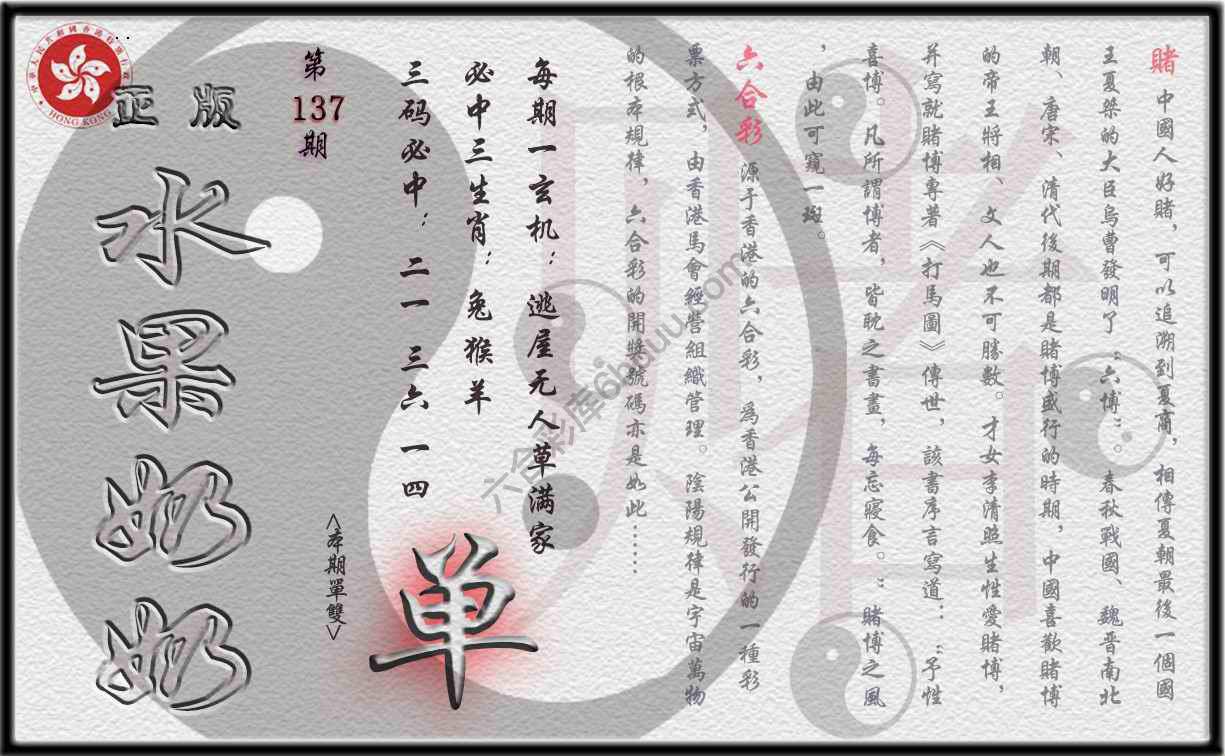 賭 中國人好賭，可以追溯到夏商，相傳夏朝最後一個國
王夏桀的大臣烏曹發明了“六博”。春秋戰國、魏晋南北
朝、唐宋、清代後期都是賭博盛行的時期，中國喜歡賭博
的帝王將相、文人也不可勝數。才女李清照生性愛賭博，
并寫就賭博專著《打馬圖》傳世，該書序言寫道：“予性
喜博。凡所謂博者，皆耽之書畫，每忘寢食。”賭博之風
，由此可窺一斑。
六合彩 源于香港的六合彩，為香港公開發行的一種彩
票方式，由香港馬會經營組織管理。陰陽規律是宇宙萬物
的根本規律，六合彩的開獎號碼亦是如此……
每期一玄机：逃屋无人草满家
必中三生肖：兔猴羊
三码必中：二一 三六 一四
单
<本期單雙>
第
137
期
正版
水果奶奶
賭
六合彩库6hduu.com
HONG KONG